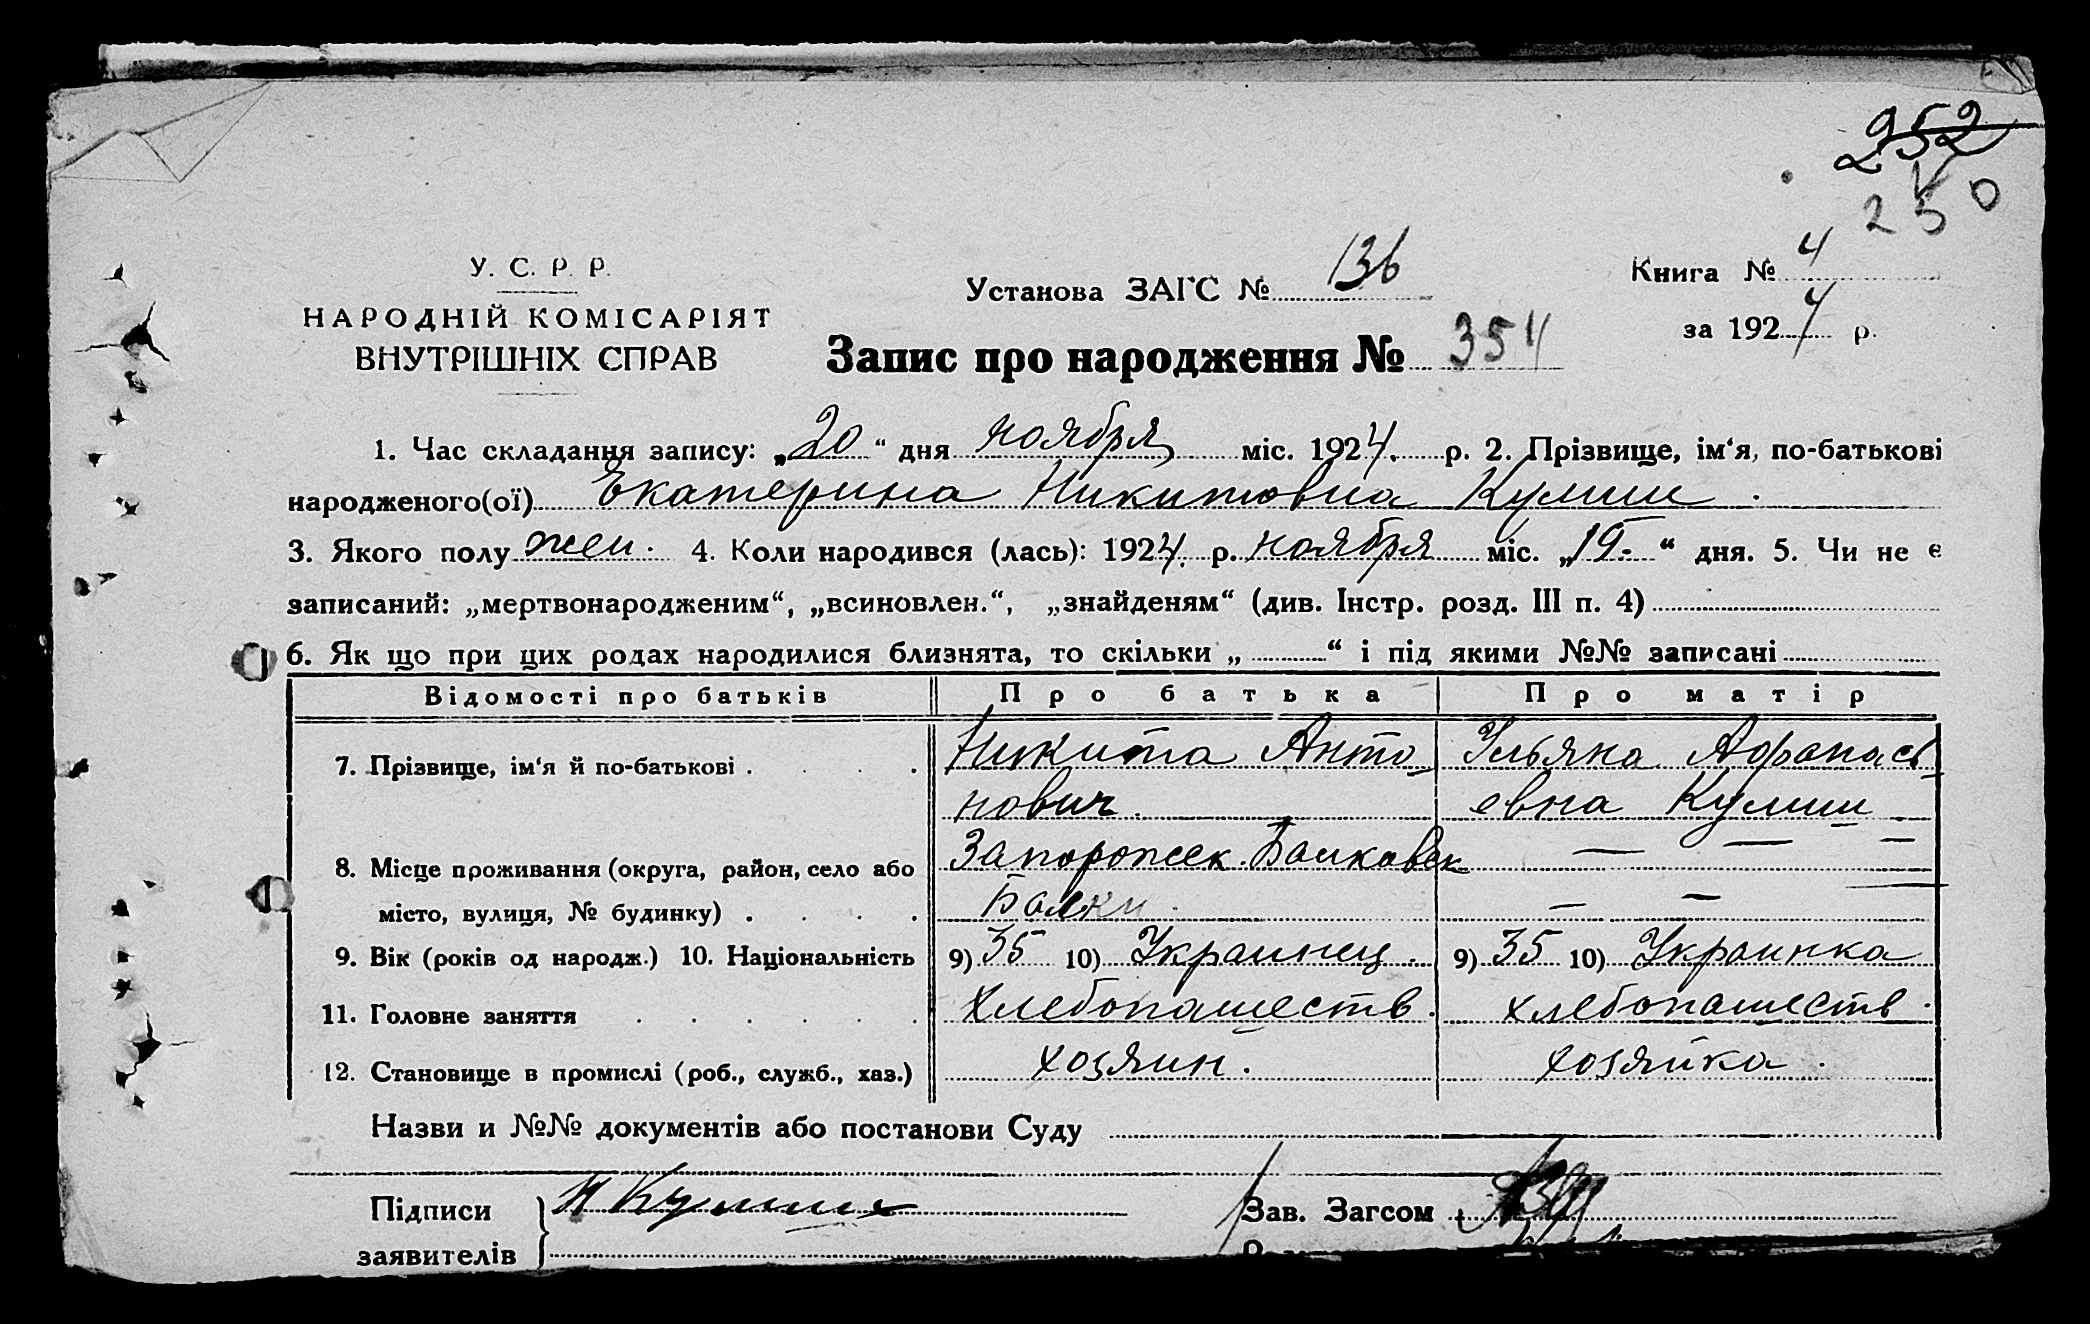 252
250
У. С. Р. Р.
НАРОДНІЙ КОМІСАРІЯТ
ВНУТРІШНІХ СПРАВ
Установа ЗАГС № 136
Книга № 4
за 1924 р.
Запис про народження № 354
1. Час складання запису: „20“ дня ноября міс. 1924. р. 2. Прізвище, ім‘я, по-батькові
народженого(ої) Екатерина Никитовна Кулиш.
3. Якого полу жен. 4. Коли народився (лась): 1924. р. ноября міс. „19.“ дня. 5. Чи не є
записаний: „мертвонародженим“, „всиновлен.“, „знайденям“ (див. Інстр. розд. III п. 4)
6. Як що при цих родах народилися близнята, то скільки „ “ і під якими №№ записані
Відомості про батьків Про батька Про матір
7. Прізвище, ім‘я й по-батькові . . . . Никита Анто- Ульяна Афанась-
нович. евна Кулиш
8. Місце проживання (округа, район, село або Запорожск. Балковск — — —
місто, вулиця, № будинку) . . . . Балки. — —
9. Вік (років од народж.) 10. Національність 9) 35 10) Украинец. 9) 35 10) Украинка
11. Головне заняття . . . . . . Хлебопашеств. хлебопашеств.
12. Становище в промислі (роб., служб., хаз.) хозяин. хозяйка.
Назви и №№ документів або постанови Суду
Підписи Н Кулиш Зав. Загсом
заявителів